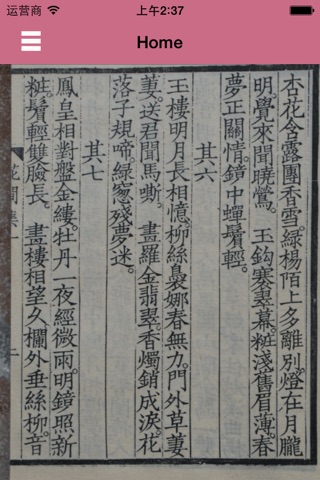 运营商 上午2:37
Home
杏花含露團香雪。綠楊陌上多離別。燈在月朧
明。覺來聞曉鶯。玉鈎褰翠幕。粧淺舊眉薄。春
夢正關情。鏡中蟬鬢輕。
其六
玉樓明月長相憶。柳絲裊娜春無力。門外草萋
萋。送君聞馬嘶。畫羅金翡翠。香燭銷成淚。花
落子規啼。綠窻殘夢迷。
其七
鳳皇相對盤金縷。牡丹一夜經微雨。明鏡照新
粧。鬢輕雙臉長。畫樓相望久。欄外垂絲柳。音